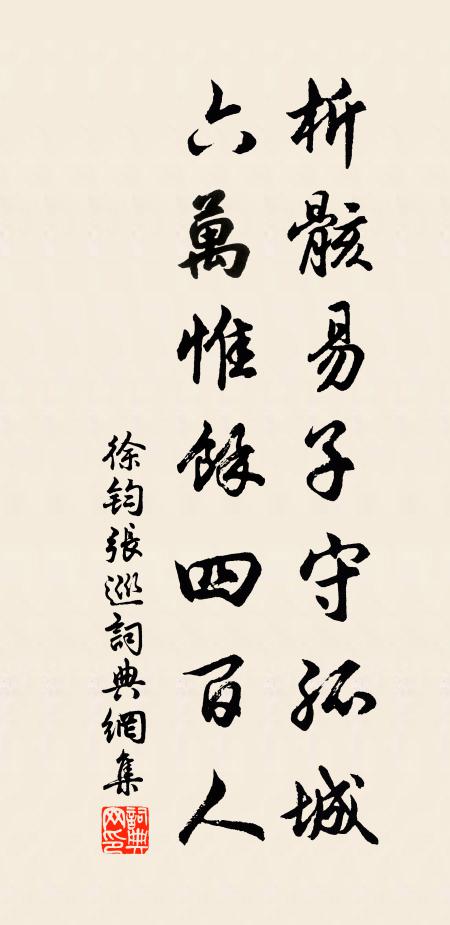 析骸易子守孤城
六萬惟餘四百人
徐鈞張巡詞典網集
詞典網印